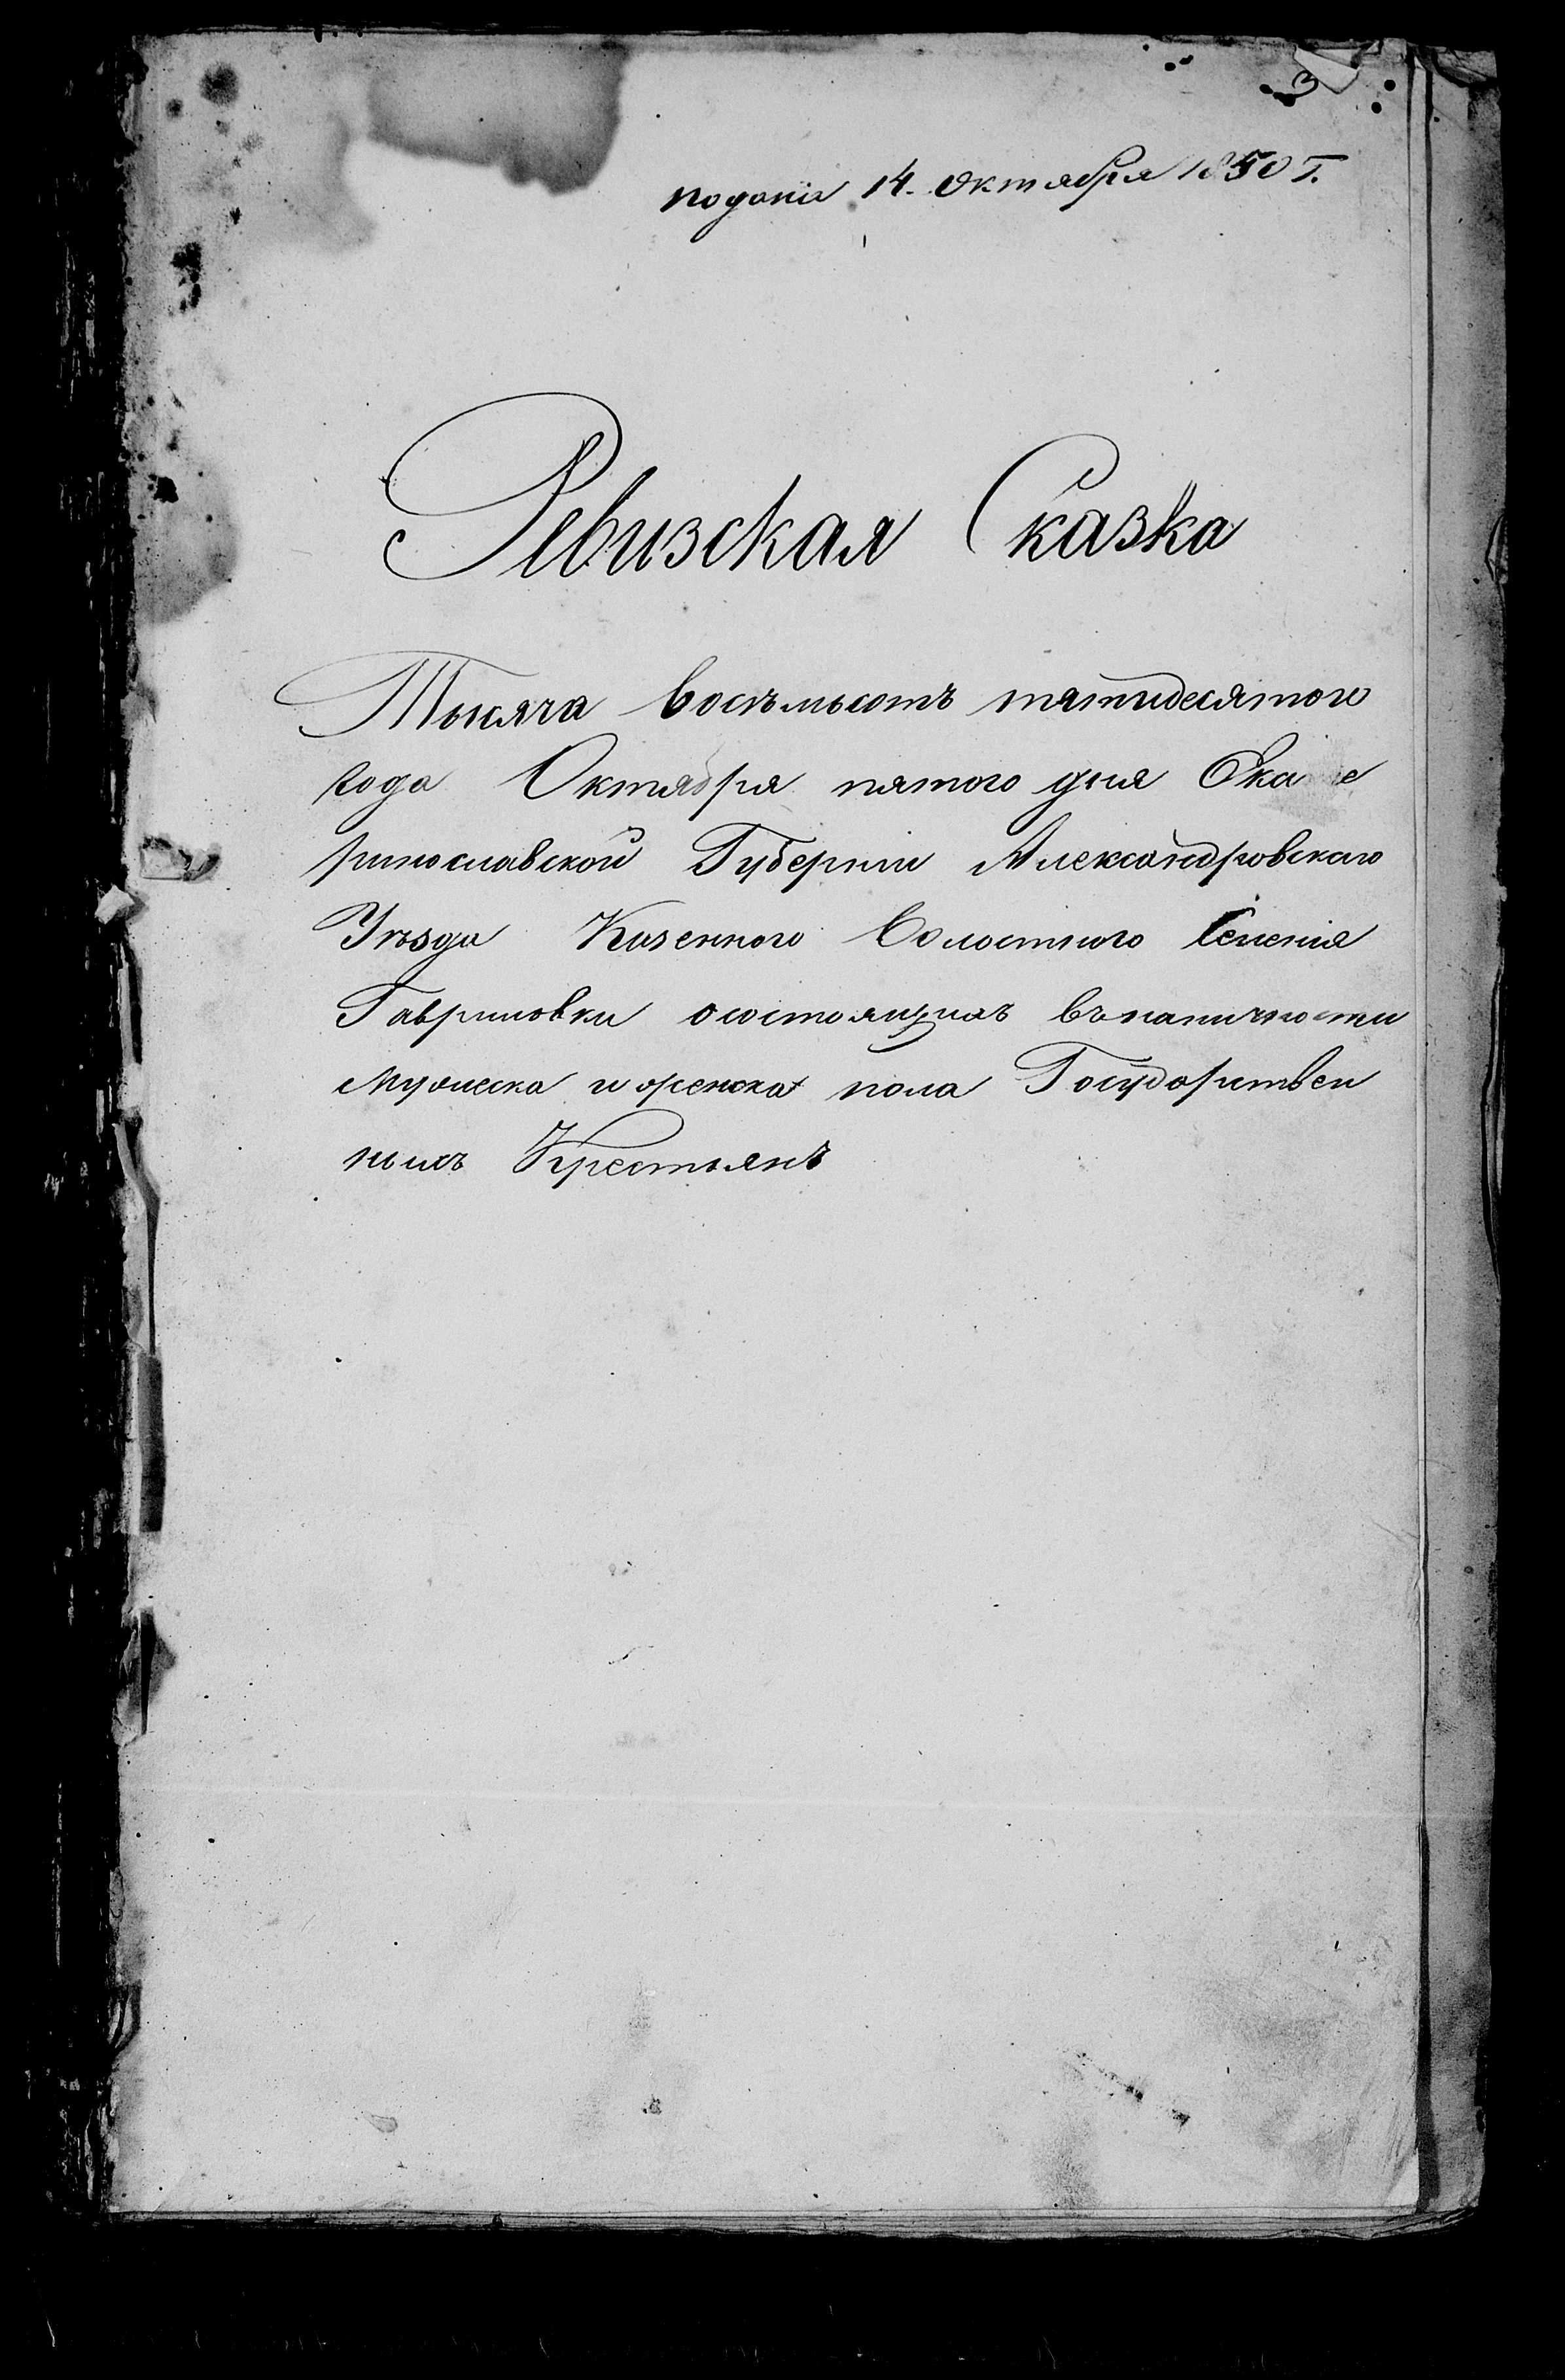 3
подана 14. Октября 1850 Г.
Ревизская Сказка
Тысяча восъмьсотъ пятидесятого
года Октября пятого дня Ека е
ринославской Губернии Александровскаго
Уѣзда Казенного Волостного Селения
Гавриловки осостоящихъ въналичности
Мужеска и женска пола Государствен
ныхъ Крестьянъ